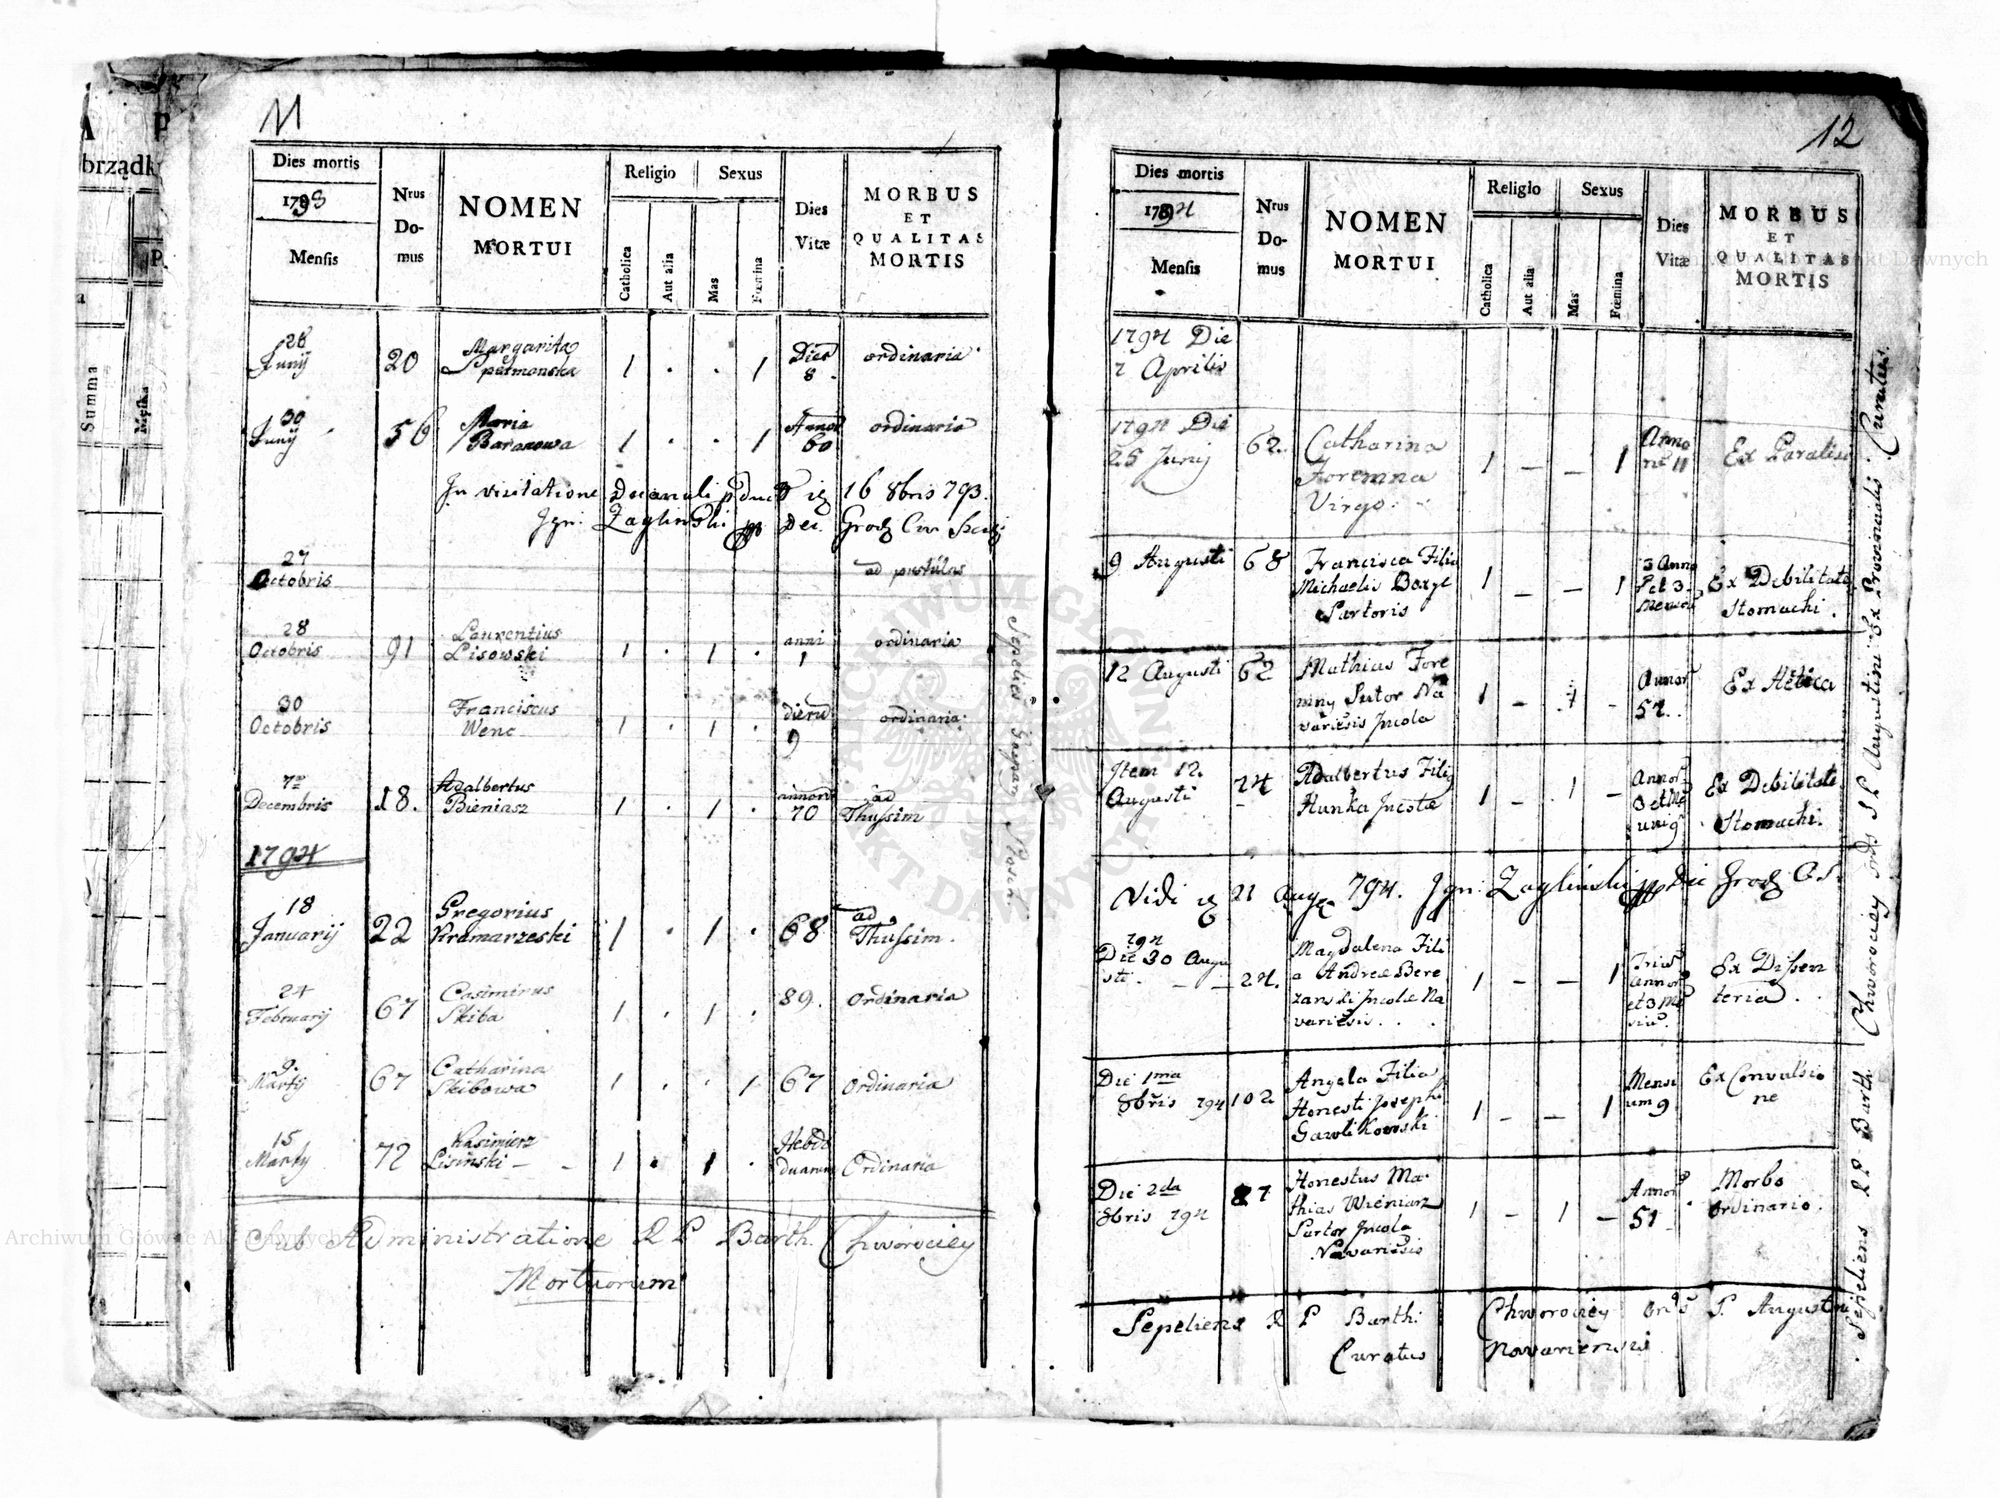 11
Dies mortis
1793
Mensis
Nrus Do- mus
NOMEN MORTUI
Religio
Catholica
Aut alia
Sexus
Mas
Fœmina
Dies Vitæ
MORBUS ET QUALITAS MORTIS
26 Junij 20 Margarita 1 . . 1 Dies 8 . ordinaria
30 Junij 56 Maria Baranowa 1 . . 1 Annor 60 ordinaria
In visitatione Decanali 16 8bris 793.
Ign: Zagliński Dec. Grod
27 Octobris ad pustulas
28 Octobris 91 Laurentius Lisowski 1 . 1 . anni 1 ordinaria
30 Octobris Franciscus Wenc 1 . 1 . dierum 9 ordinaria
7ma Decembris 18. Adalbertus Bieniasz 1 . 1 . annorum 70 ad Thussim
1794
18 Januarij 22 Gregorius Kramarzeski 1 . 1 . 68 ad Thussim.
24 Februarij 67 Casimirus Skiba 1 . 1 . 89. ordinaria
9. Martij 67 Catharina Skibowa 1 . . 1 67 ordinaria
15 Martij 72 Kasimierz Lisinski - - 1 . 1 . Hebdo duarum Ordinaria
Sub Administratione R P Barth. Chworociey
Mortuorum
Sepelier
12
Dies mortis
1794
Mensis
Nrus Do- mus
NOMEN MORTUI
Religio
Catholica
Aut alia
Sexus
Mas
Fœmina
Dies Vitæ
MORBUS ET QUALITAS MORTIS
1794 Die
7 Aprilis
1794 Die 25 Junij 62. Catharina Foremna Virgo. 1 - - 1 Anno 11 Ex Paralisi
9 Augusti 68 Francisca Filia Michaelis Sartoris 1 - - 1 3 Anno et 3 Ex Debilitate Stomachi.
12 Augusti 62 Mathias Foremny Sutor Navariesis Incola 1 - 1 - Annor 54. Ex Hetica
Item 12. Augusti 24 Adalbertus Hunka Incolæ 1 - 1 - Annor 3 Ex Debilitate Stomachi.
Vidi 21 Aug 794. Ign: Zagliński Dec Grod
794 Die 30 Augusti. 24. Magdalena Filia Andreæ Berezanski Incolæ Navariesis. 1 - - 1 Annor et 3 Ex Dissenteria.
Die 1ma 8bris 794 102 Angela Filia Honesti Josephi Gawlikowski 1 - - 1 Mensium 9 Ex Convulsione
Die 2da 8bris 794 87 Honestus Mathias Wieniarz Sartor Incola Navariesis 1 - 1 - Annor 51 Morbo ordinario.
Sepeliens R P Barth: Chworociey Ordis S. Augustini
Curatus Navariensis
Sepeliens R.P. Barth. Chworociey Ordis S P Augustini Ex Provincialis Curatus.
Archiwum Główne Akt Dawnych
ARCHIWUM GŁÓWNE AKT DAWNYCH
brządk
Summa
Męska